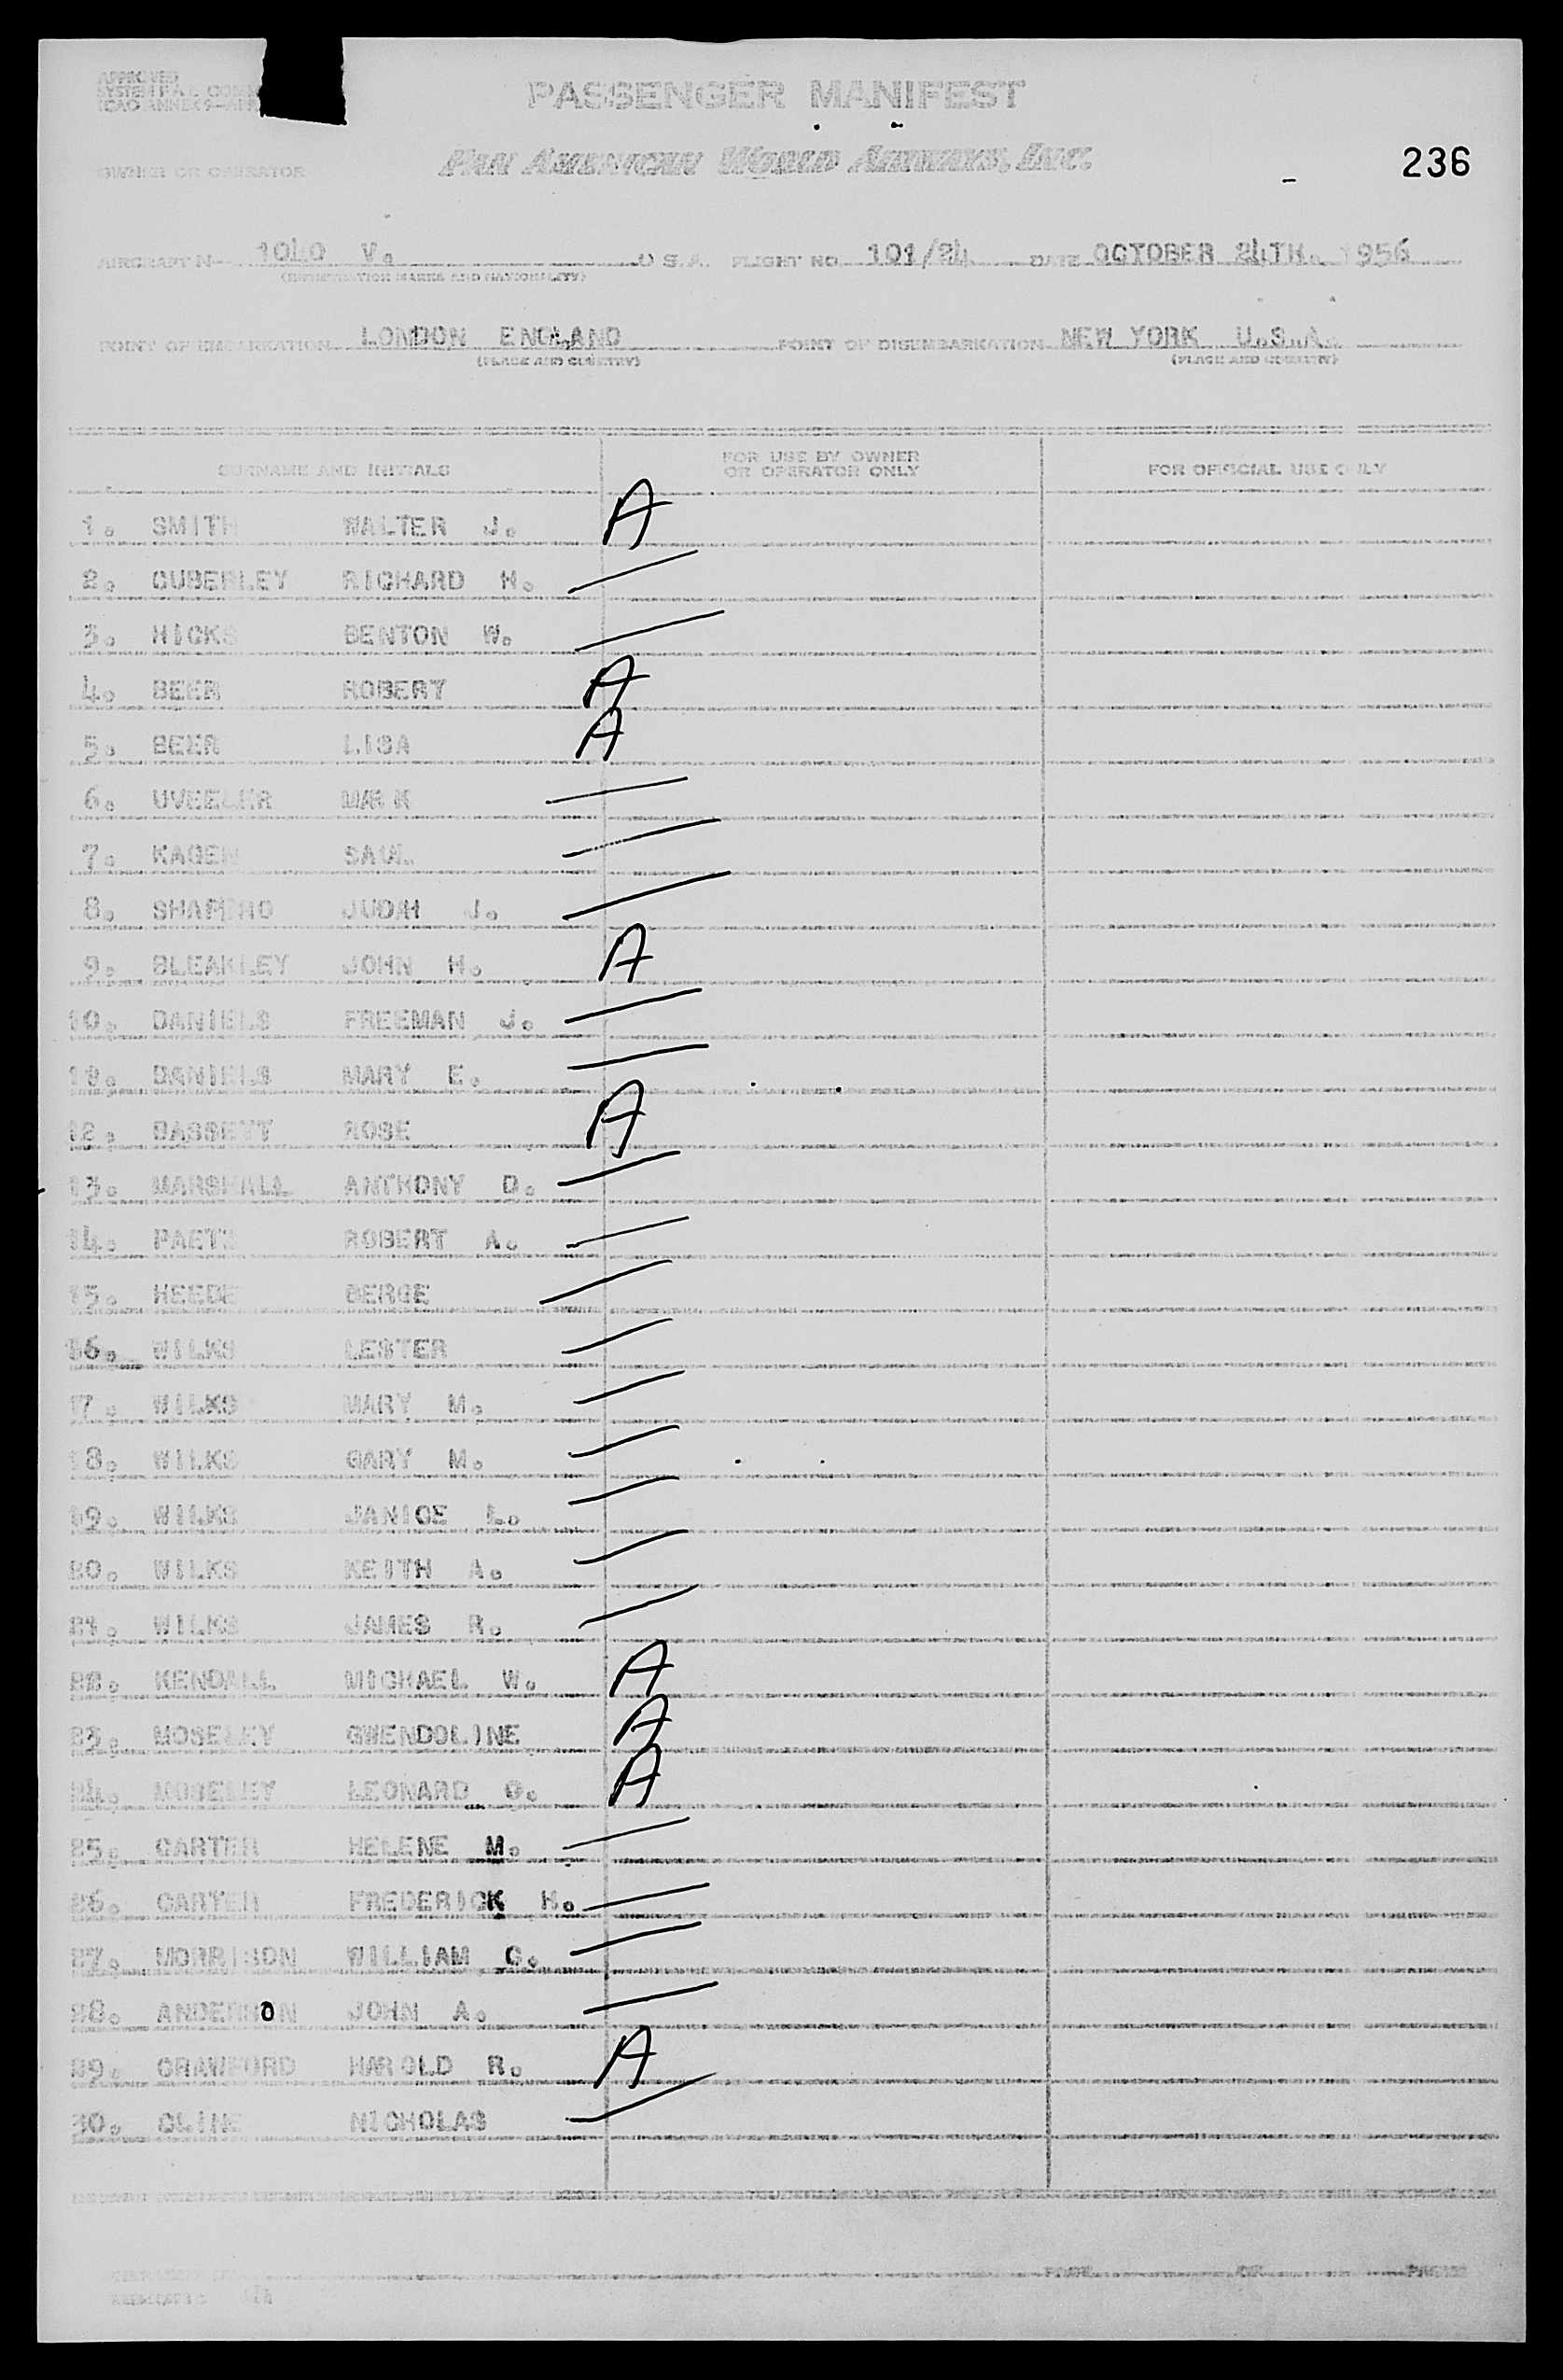 APPROVED
PASSENGER MANIFEST
PAN AMERICAN WORLD AIRWAYS, INC.
236
OWNER OR OPERATOR
AIRCRAFT N 1040 V. U.S.A. FLIGHT NO. 101/24 DATE OCTOBER 24TH. 1956
(IDENTIFICATION MARKS AND NATIONALITY)
POINT OF EMBARKATION LONDON ENGLAND POINT OF DISEMBARKATION NEW YORK U.S.A.
(PLACE AND COUNTRY) (PLACE AND COUNTRY)
SURNAME AND INITIALS FOR USE BY OWNER OR OPERATOR ONLY FOR OFFICIAL USE ONLY
1. SMITH WALTER J. A
2. CUBERLEY RICHARD H. /
3. HICKS BENTON W. /
4. BEER ROBERT A
5. BEER LISA A
6. UVEELER MARK /
7. KAGEN SAUL /
8. SHAPIRO JUDAH J. /
9. BLEAKLEY JOHN H. A
10. DANIELS FREEMAN J. /
11. DANIELS MARY E. /
12. BASSETT ROSE A
13. MARSHALL ANTHONY D. /
14. PAETS ROBERT A. /
15. HEEDE BERGE /
16. WILKS LESTER /
17. WILKS MARY M. /
18. WILKS GARY M. /
19. WILKS JANICE L. /
20. WILKS KEITH A. /
21. WILKS JAMES R. /
22. KENDALL MICHAEL W. A
23. MOSELEY GWENDOLINE A
24. MOSELEY LEONARD O. A
25. CARTER HELENE M. /
26. CARTER FREDERICK H. /
27. MORRISON WILLIAM C. /
28. ANDERSON JOHN A. /
29. CRAWFORD HAROLD R. A
30. CLINE NICHOLAS /
PAGE OF PAGES